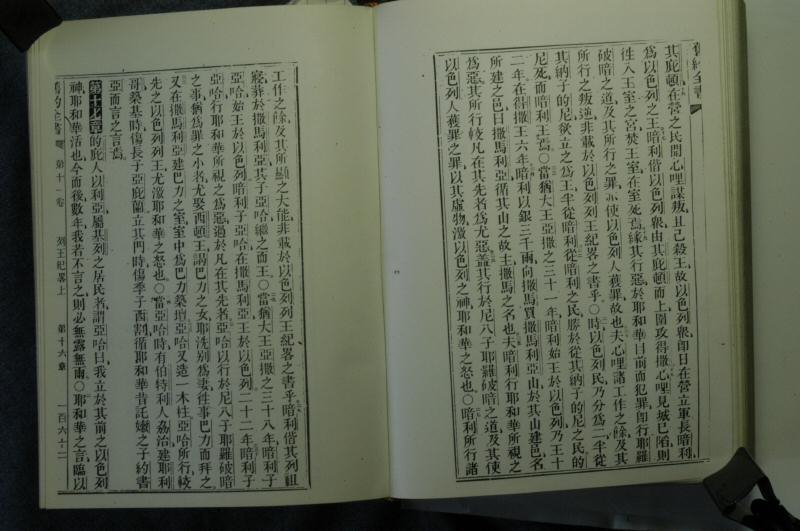 舊約全書
其庇頓在營之民聞心哩謀叛且已殺王故以色列眾卽日在營立軍長暗利
為以色列之王暗利偕以色列眾由其庇頓而上圍攻得撒心哩見城已陷則
徃入王室之宮焚王室在室死焉緣其行惡於耶和華目前而犯罪卽行耶羅
破暗之道及其所行之罪以使以色列人獲罪故也夫心哩諸工作之餘及其
所行之叛逆非載於以色列列王紀畧之書乎〇時以色列民乃分為二半從
其納子的尼欲立之為王半從暗利從暗利之民勝於從其納子的尼之民的
尼死而暗利王焉〇當猶大王亞撒之三十一年暗利始王於以色列乃王十
二年在得撒王六年暗利以銀三千兩向撒馬買撒馬利亞山於其山建邑名
所建之邑曰撒馬利亞循其山之故主撒馬之名也夫暗利行耶和華所視之
為惡其所行較凡在其先者為尤惡蓋其行於尼八子耶羅破暗之道及其使
以色列人獲罪之罪以其虛物激以色列之神耶和華之怒也〇暗利所行諸
工作之餘及其所顯之大能非載於以色列列王紀畧之書乎暗利偕其列祖
寢葬於撒馬利亞其子亞哈繼之而王〇當猶大王亞撒之三十八年暗利子
亞哈始王於以色列暗利子亞哈在撒馬利亞王於以色列二十二年暗利子
亞哈行耶和華所視之為惡過於凡在其先者亞哈以行於尼八子耶羅破暗
之事猶為罪之小者尤娶西頓王謁巴力之女耶洗別為妻徃事巴力而拜之
又在撒馬利亞建巴力之室室中為巴力築壇亞哈又造一木柱亞哈所行較
先之以色列列王尤激耶和華之怒也〇當亞哈時有伯特利人易治建耶利
哥築基時傷長子亞庇蘭立其門時傷季子西割循耶和華昔託嫩之子約書
亞而言之言焉
第十七章的庇人以利亞屬基列之居民者謂亞哈曰我立於其前之以色列
神耶和華活也今而後數年我若不言之則必無露無雨〇耶和華之言臨以
舊約全書 第十一卷 列王紀畧上 第十六章 一百六十二